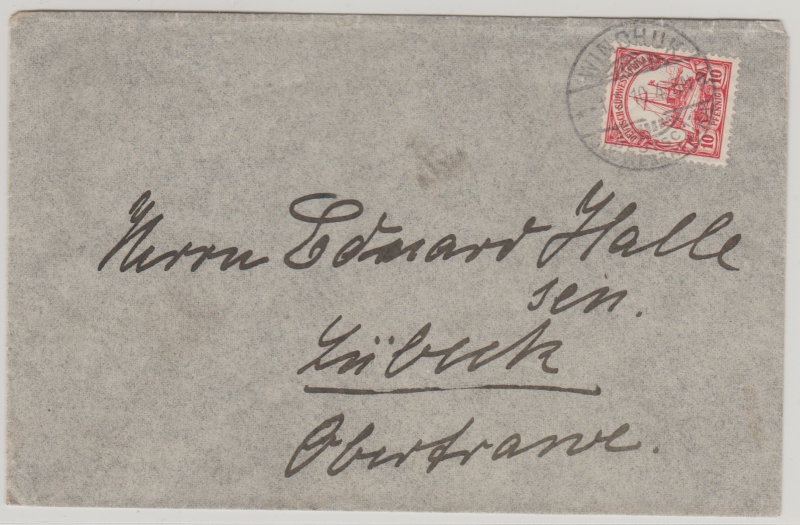 WINDHUK
DEUSCH-SÜDWESTAFRIKA
10
PFENNIG
10
Herrn Eduard Halle
sen.
Lübeck
Obertrave.